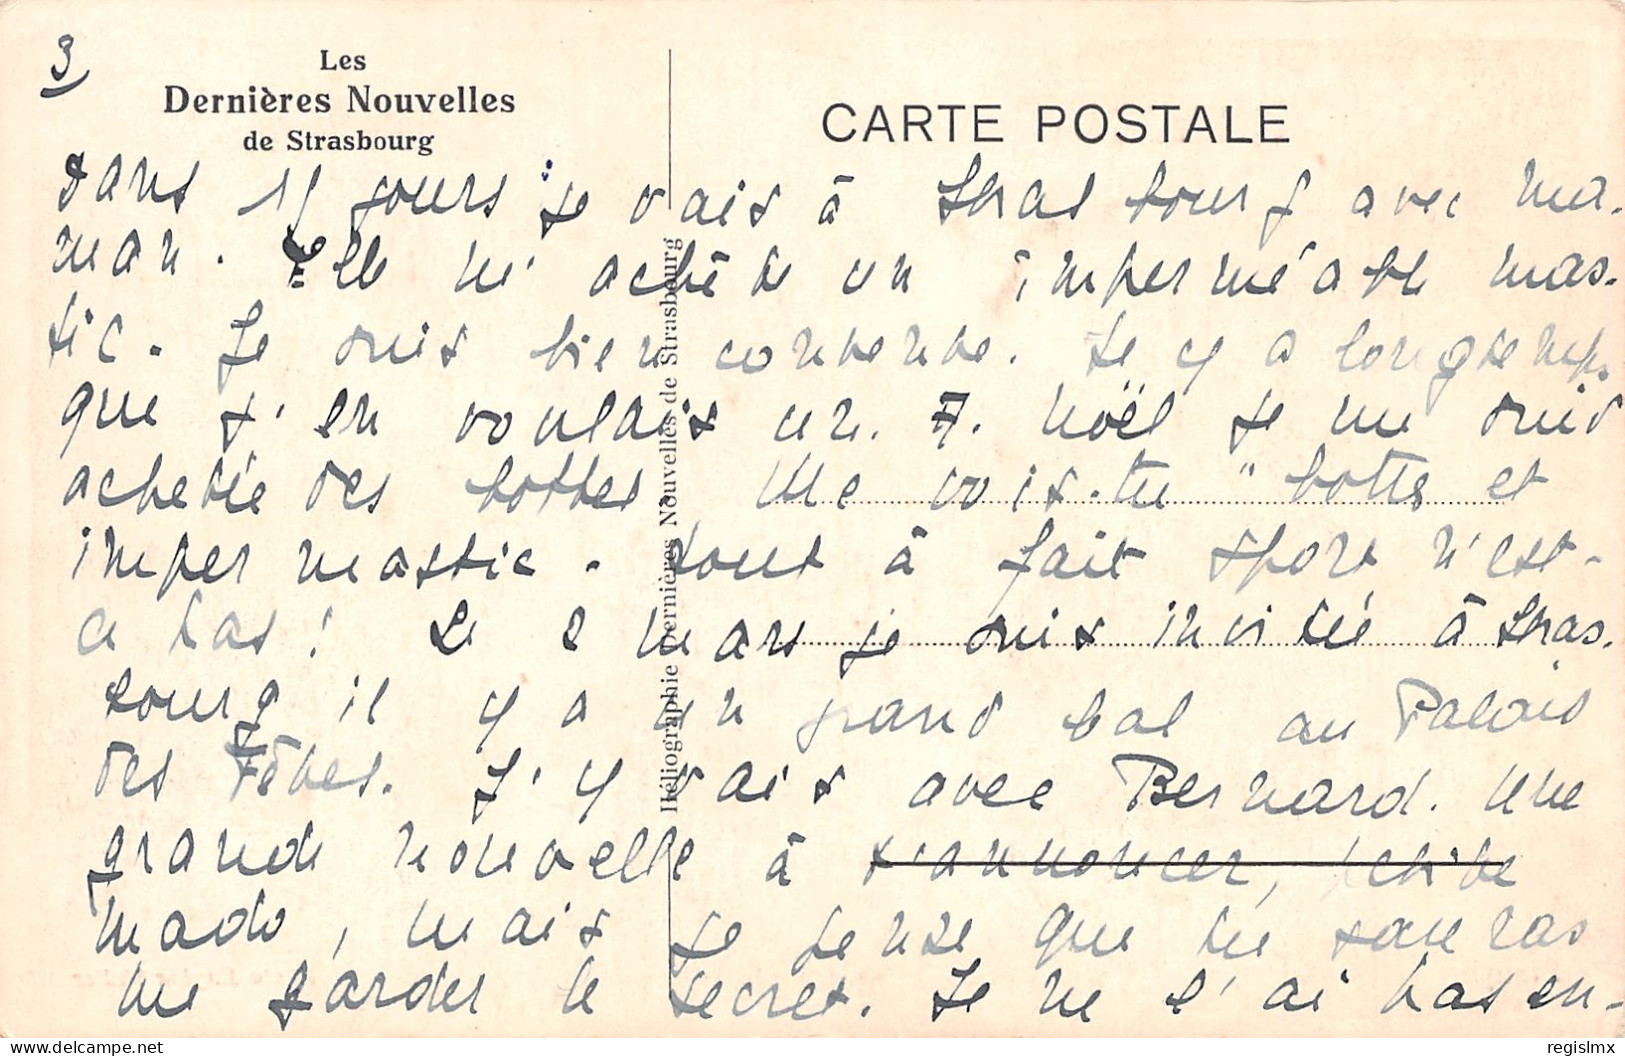 3
Les
Dernières Nouvelles
de Strasbourg
CARTE POSTALE
Dans 15 jours je vais à Strasbourg avec ma-
man. Elle m'achète un imperméable mas-
tic. Je suis bien contente. Il y a longtemps
que j'en voulais un. A noël je me suis
achetée des bottes. Me vois-tu "botte et
imper mastic. tout à fait sport n'est-
ce pas! Le 2 mars je suis invitée à Stras-
bourg il y a un grand bal au Palais
des Fêtes. J'y vais avec Bernard. Une
grande nouvelle à t'annoncer, petite
mado, mais je pense que tu sauras
me garder le secret. Je ne l'ai pas en-
Héliographie Dernières Nouvelles de Strasbourg
delcampe.net
regislmx